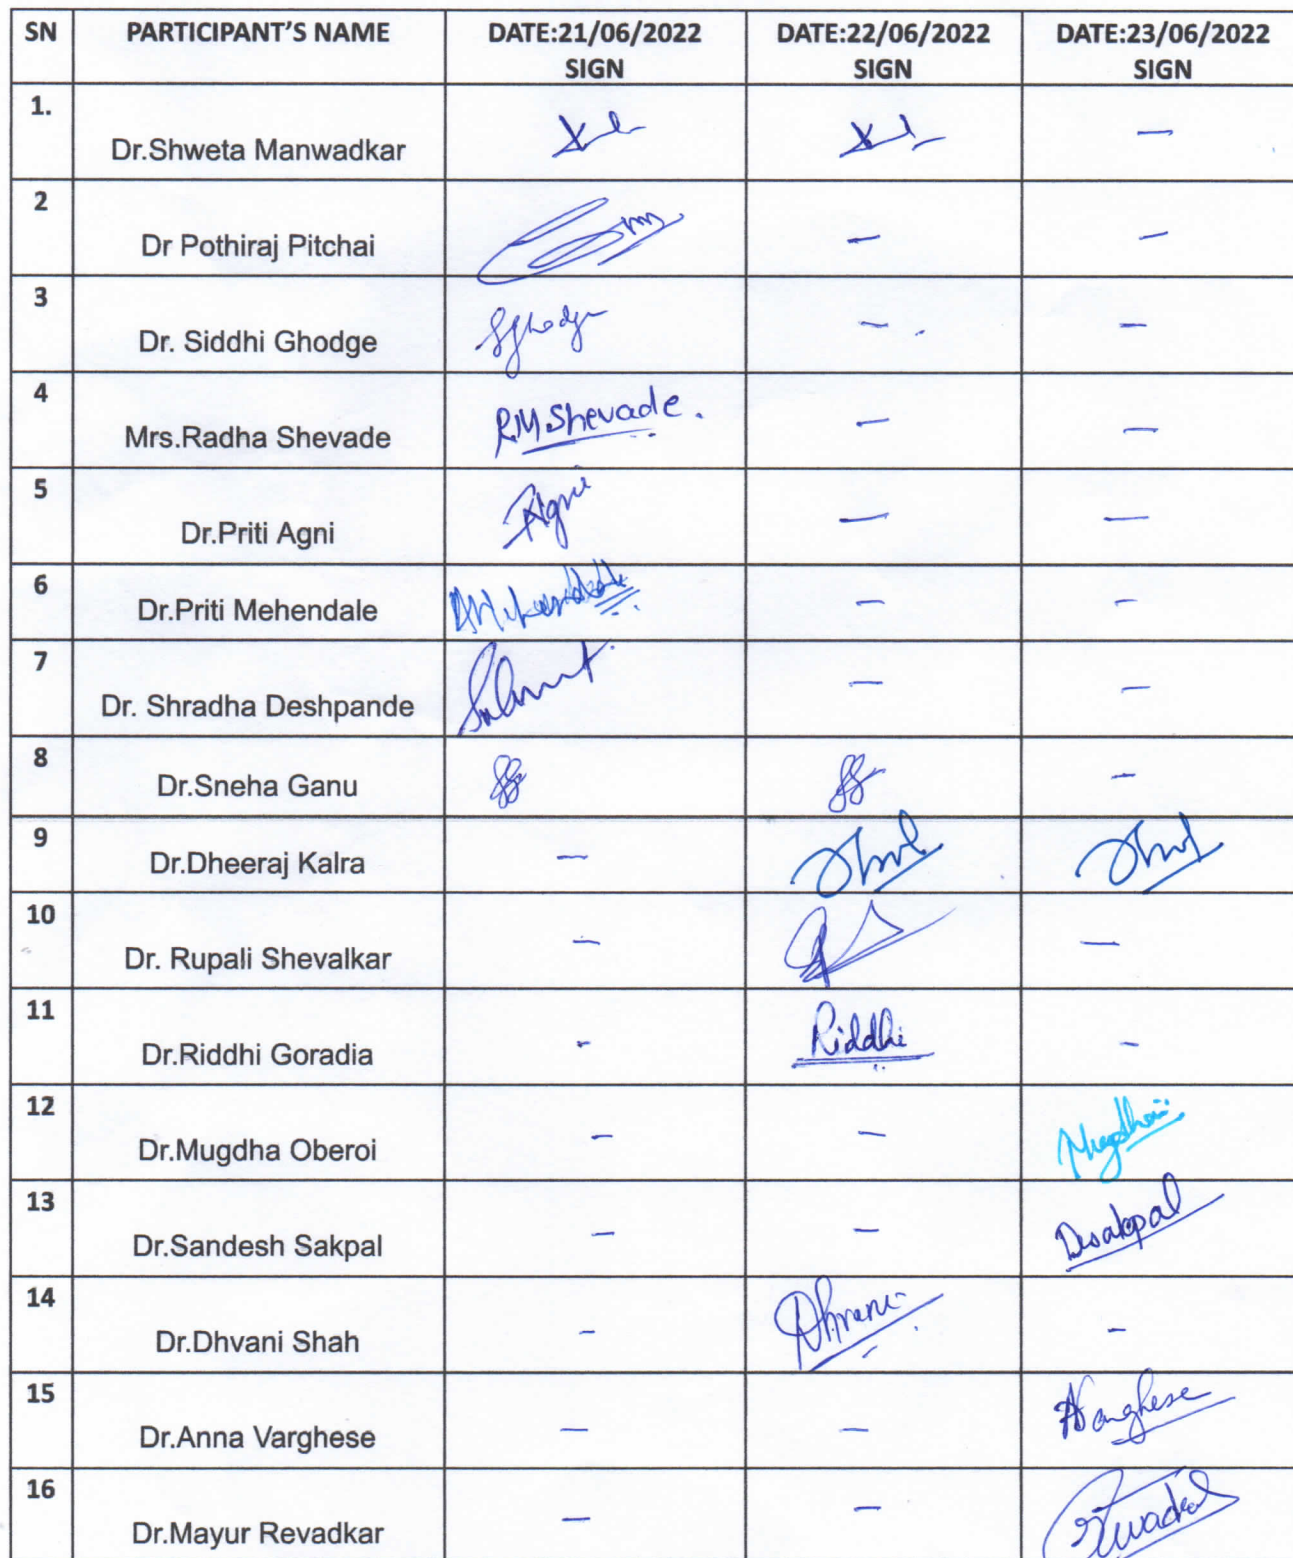 SN PARTICIPANT'S NAME DATE:21/06/2022 DATE:22/06/2022 DATE:23/06/2022
SIGN SIGN SIGN
1.
Dr.Shweta Manwadkar —
2
Dr Pothiraj Pitchai — —
3
Dr. Siddhi Ghodge SGhodge — —
4
Mrs.Radha Shevade R.M.Shevade. — —
5
Dr.Priti Agni Agni — —
6
Dr.Priti Mehendale — —
7
Dr. Shradha Deshpande — —
8
Dr.Sneha Ganu —
9
Dr.Dheeraj Kalra —
10
Dr. Rupali Shevalkar — —
11
Dr.Riddhi Goradia - Riddhi —
12
Dr.Mugdha Oberoi — — Mugdha
13
Dr.Sandesh Sakpal — — Dsakpal
14
Dr.Dhvani Shah — Dhvani —
15
Dr.Anna Varghese — — AVarghese
16
Dr.Mayur Revadkar — —